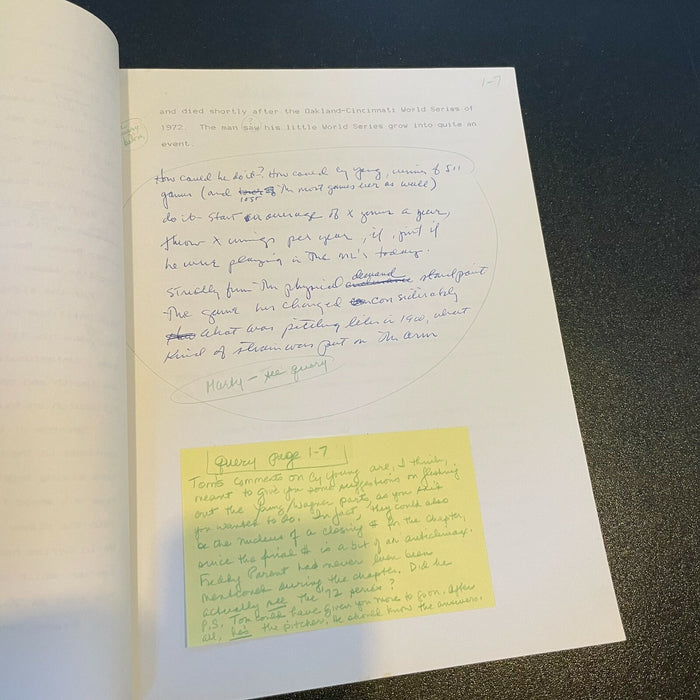 1-7
and died shortly after the Oakland-Cincinnati World Series of
1972. The man saw his little World Series grow into quite an
event.
How could he do it? How could Cy Young, winner of 511
games (and lost the most games ever as well)
do it - start an average of x games a year,
throw x innings per year, if, just if
he were playing in the ML's today.
Strictly from the physical demand standpoint
The game has changed considerably
What was pitching like in 1900, what
kind of strain was put on the arm
Marty - see query
query page 1-7
Tom's comments on Cy Young are, I think,
meant to give you some suggestions on fleshing
out the Young/Wagner parts, as you said
you wanted to do. In fact, they could also
be the nucleus of a closing ¶ for the chapter,
since the final ¶ is a bit of an anticlimax.
Freddy Parent had never even been
mentioned during the chapter. Did he
actually see the '72 series?
P.S. Tom could have given you more to go on. After
all, he's the pitcher; he should know the answers.